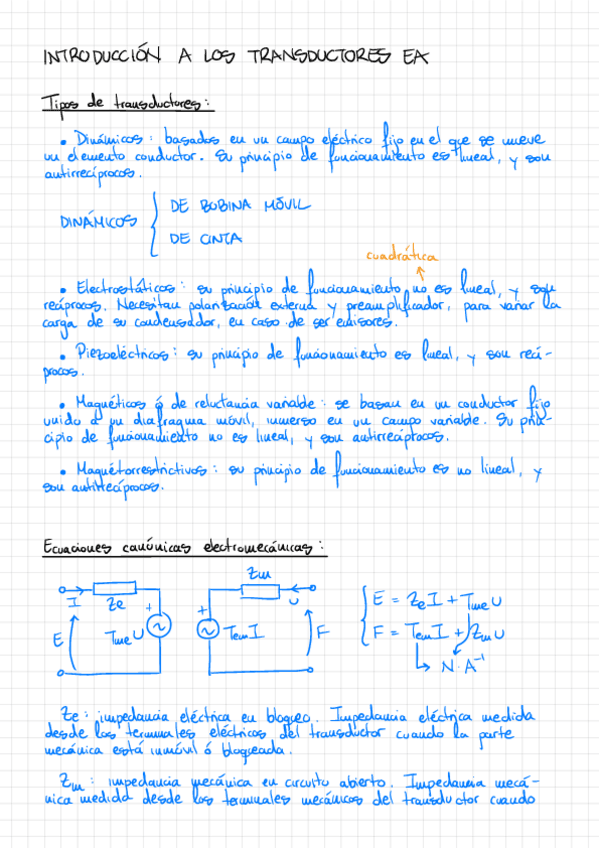 INTRODUCCIÓN A LOS TRANSDUCTORES EA
Tipos de transductores:
• Dinámicos: basados en un campo eléctrico fijo en el que se mueve
un elemento conductor. Su principio de funcionamiento es lineal, y son
antirrecíprocos.
DINÁMICOS
DE BOBINA MÓVIL
DE CINTA
cuadrática
• Electrostáticos: su principio de funcionamiento no es lineal, y son
recíprocos. Necesitan polarización externa y preamplificador, para variar la
carga de su condensador, en caso de ser emisores.
• Piezoeléctricos: su principio de funcionamiento es lineal, y son recí-
procos.
• Magnéticos ó de reluctancia variable: se basan en un conductor fijo
unido a un diafragma móvil, inmerso en un campo variable. Su prin-
cipio de funcionamiento no es lineal, y son antirrecíprocos.
• Magnetorrestrictivos: su principio de funcionamiento es no lineal, y
son antirrecíprocos.
Ecuaciones canónicas electromecánicas:
I Ze + E TmeU
Zm U + TemI F
E = ZeI + TmeU
F = TemI + ZmU
N·A⁻¹
Ze: impedancia eléctrica en bloqueo. Impedancia eléctrica medida
desde los terminales eléctricos del transductor cuando la parte
mecánica está inmóvil ó bloqueada.
Zm: impedancia mecánica en circuito abierto. Impedancia mecá-
nica medida desde los terminales mecánicos del transductor cuando